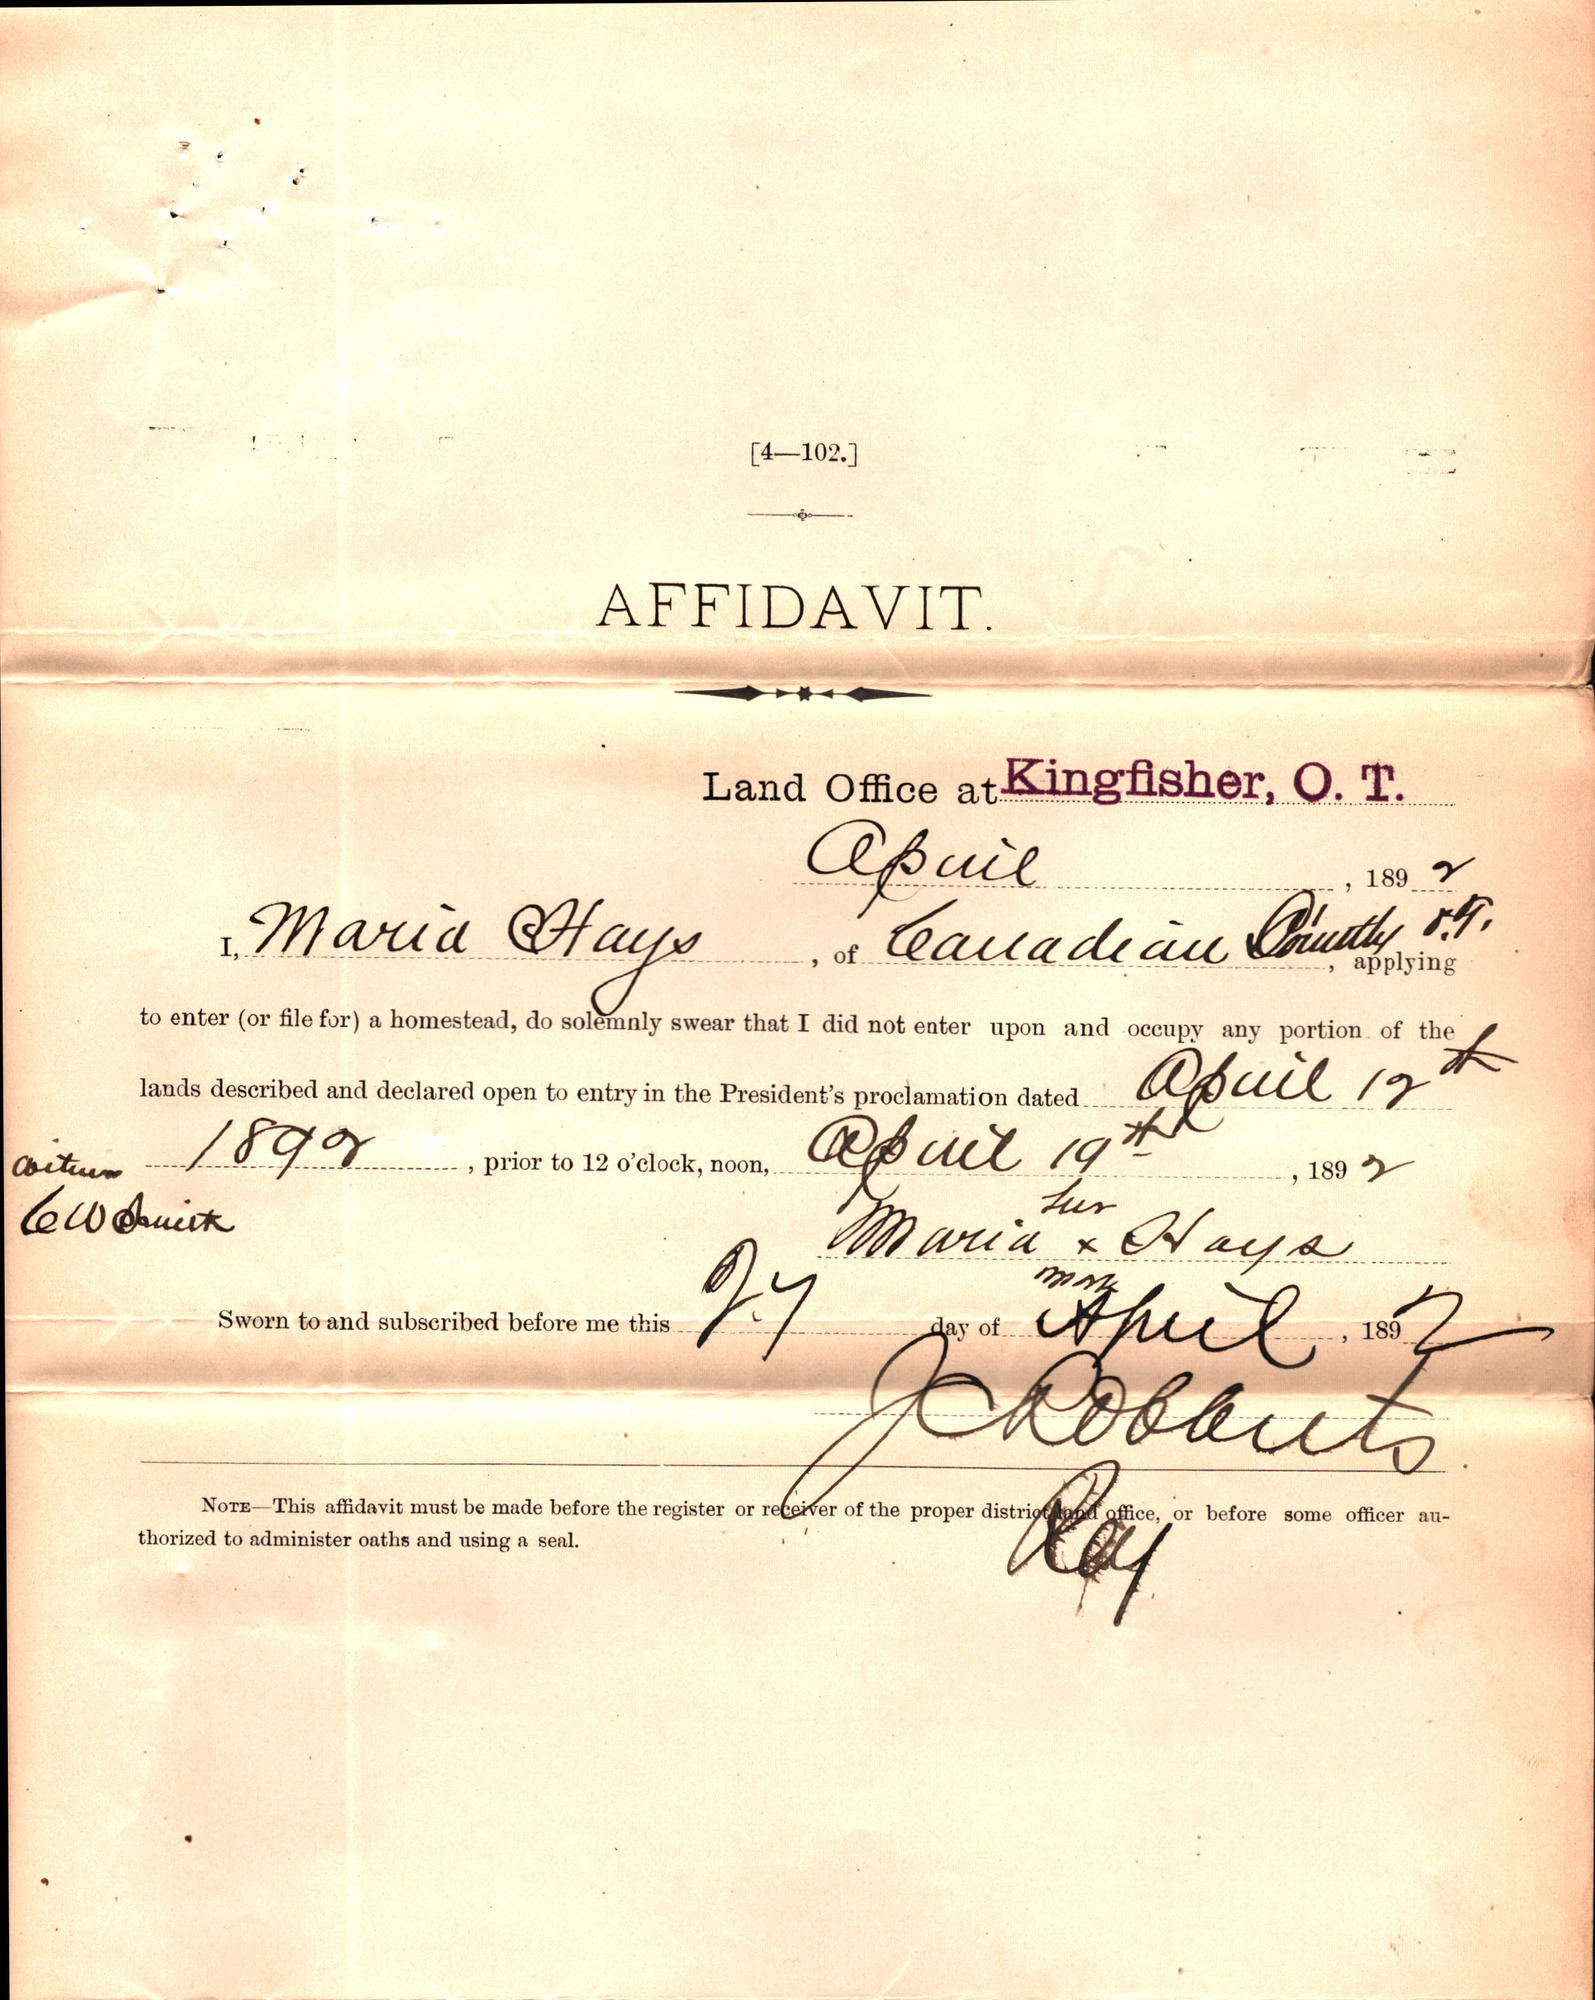 [4—102.]
AFFIDAVIT.
Land Office at Kingfisher, O. T.
April , 1892
I, Maria Hays , of Canadian County O.T. , applying
to enter (or file for) a homestead, do solemnly swear that I did not enter upon and occupy any portion of the
lands described and declared open to entry in the President's proclamation dated April 12th
1892 , prior to 12 o'clock, noon, April 19th , 1892
witness
C W Smith
her
Maria x Hays
mark
Sworn to and subscribed before me this 27 day of April , 1892
J C Robberts
NOTE—This affidavit must be made before the register or receiver of the proper district land office, or before some officer au-
thorized to administer oaths and using a seal.